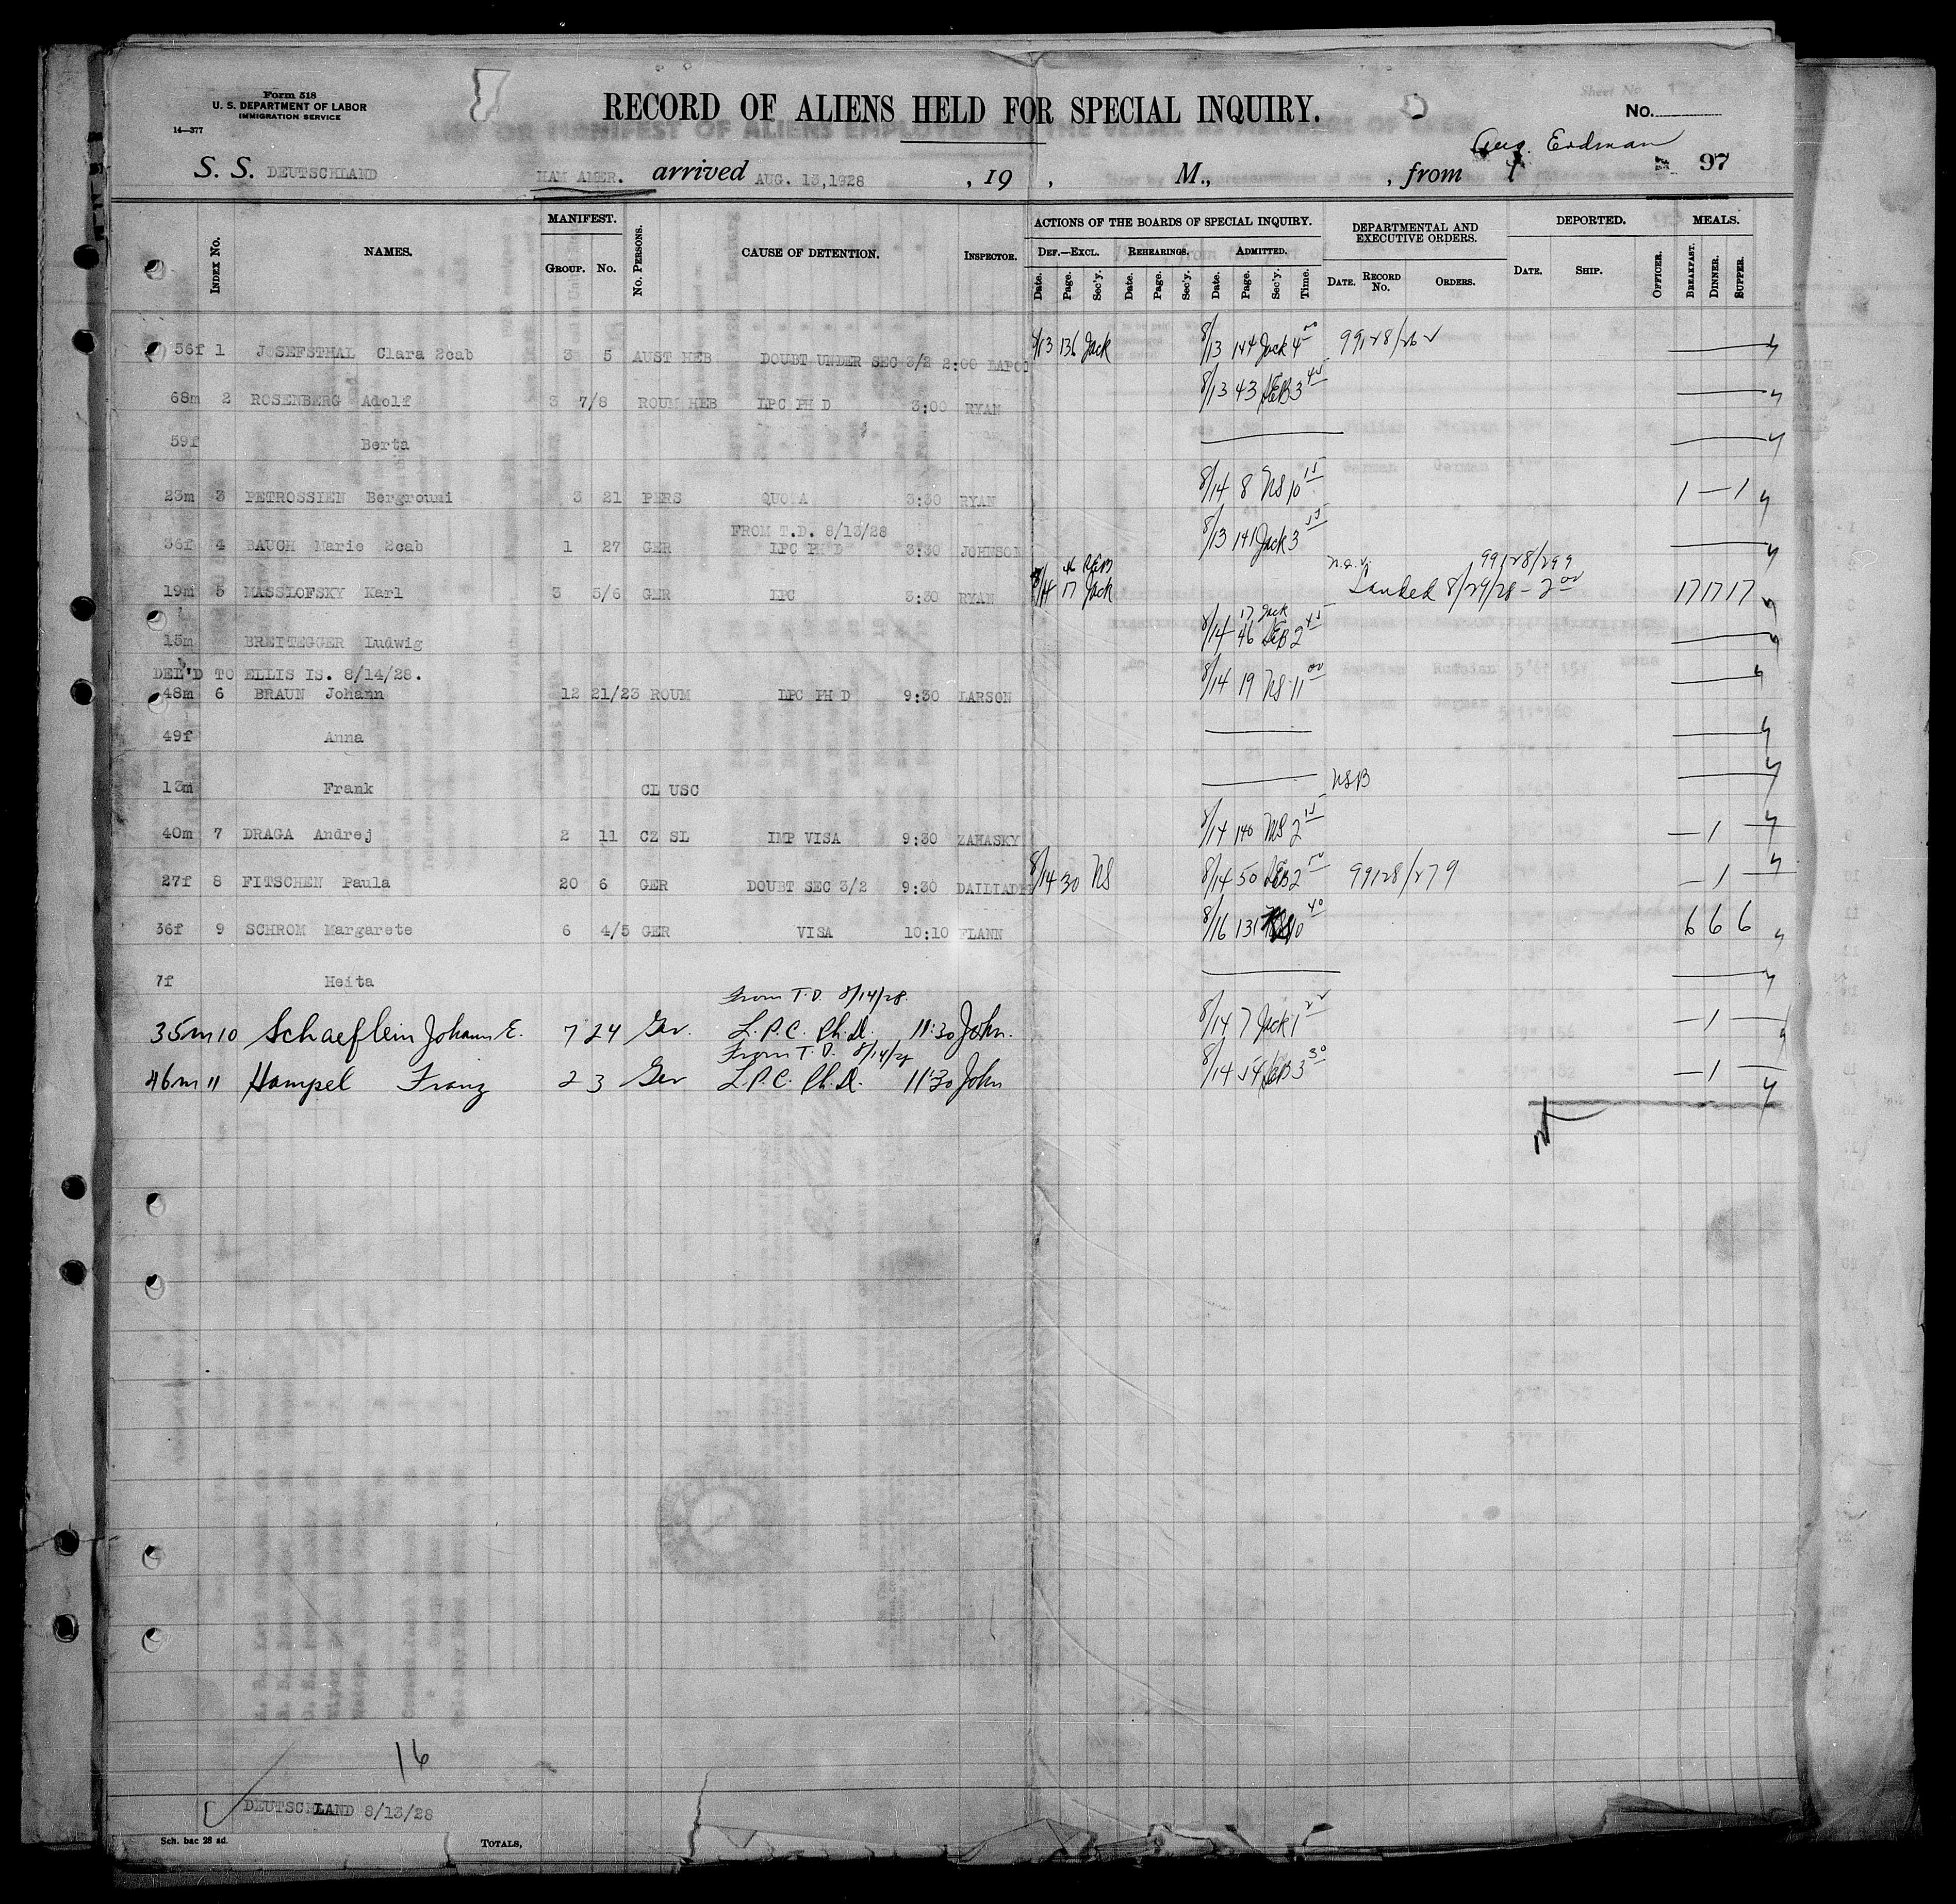 Form 518
U. S. DEPARTMENT OF LABOR
IMMIGRATION SERVICE
14—377
RECORD OF ALIENS HELD FOR SPECIAL INQUIRY.
No.
Aug. Erdman
S. S. DEUTSCHLAND HAM AMER. arrived AUG. 13,1928 , 19 , M., , from 97
INDEX No. NAMES. MANIFEST. GROUP. No. No. PERSONS. CAUSE OF DETENTION. INSPECTOR. ACTIONS OF THE BOARDS OF SPECIAL INQUIRY. DEF.—EXCL. Date. Page. Sec'y. REHEARINGS. Date. Page. Sec'y. ADMITTED. Date. Page. Sec'y. Time. DEPARTMENTAL AND EXECUTIVE ORDERS. DATE. RECORD No. ORDERS. DEPORTED. DATE. SHIP. OFFICER. MEALS. BREAKFAST. DINNER. SUPPER.
56f 1 JOSEFSTHAL Clara 2cab 3 5 AUST HEB DOUBT UNDER SEC 3/2 2:00 8/13 136 Jack 8/13 144 Jack 4 00
68m 2 ROSENBERG Adolf 3 7/8 ROUM HEB LPC PH D 3:00 RYAN 8/13 43 3 45
59f Berta
23m 3 PETROSSIEN Bergroumi 3 21 PERS QUOTA 3:30 RYAN 8/14 8 NS 10 15 1 — 1
FROM T.D. 8/13/28
36f 4 BAUCH Marie 2cab 1 27 GER LPC PH D 3:30 JOHNSON 8/13 141 Jack 3
46 99128/299
19m 5 MASSLOFSKY Karl 3 5/6 GER LPC 3:30 RYAN 8/14 17 Jack Landed 8/29/28 - 2 00 17 17 17
17 Jack
15m BREITEGGER Ludwig 8/14 46 2 45
DEL'D TO ELLIS IS. 8/14/28.
48m 6 BRAUN Johann 12 21/23 ROUM LPC PH D 9:30 LARSON 8/14 19 NS 11 00
49f Anna
13m Frank CL USC NSB
40m 7 DRAGA Andrej 2 11 CZ SL IMP VISA 9:30 ZAHASKY 8/14 140 NS 2 15 — 1 —
27f 8 FITSCHEN Paula 20 6 GER DOUBT SEC 3/2 9:30 8/14 30 NS 8/14 50 2 99128/279 — 1 —
36f 9 SCHROM Margarete 6 4/5 GER VISA 10:10 FLANN 8/16 131 10 40 6 6 6
7f Heita
From T.D. 8/14/28.
35m 10 Schaeflein Johann E. 7 24 Ger. L.P.C. Ph.D. 11:30 John. 8/14 7 Jack 1 — 1 —
From T.D. 8/14/28
46m 11 Hampel Franz 2 3 Ger L.P.C. Ph.D. 11:30 John 8/14 54 3 30 — 1 —
16
DEUTSCHLAND 8/13/28
Sch. bac 28 ad.
TOTALS,